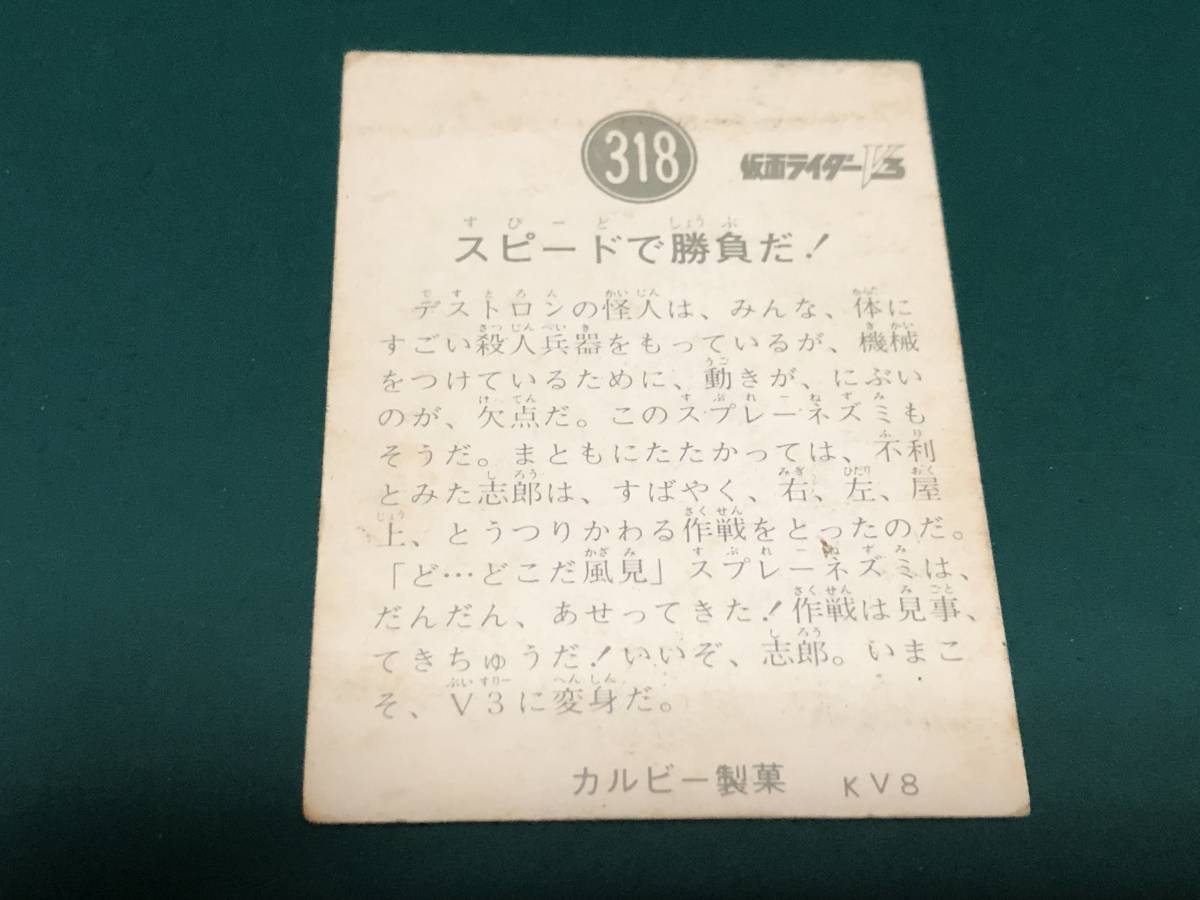 318
仮面ライダーV3
スピードで勝負だ!
デストロンの怪人は、みんな、体に
すごい殺人兵器をもっているが、機械
をつけているために、動きが、にぶい
のが、欠点だ。このスプレーネズミも
そうだ。まともにたたかっては、不利
とみた志郎は、すばやく、右、左、屋
上、とうつりかわる作戦をとったのだ。
「ど…どこだ風見」スプレーネズミは、
だんだん、あせってきた!作戦は見事、
てきちゅうだ!いいぞ、志郎。いまこ
そ、V3に変身だ。
カルビー製菓 KV8